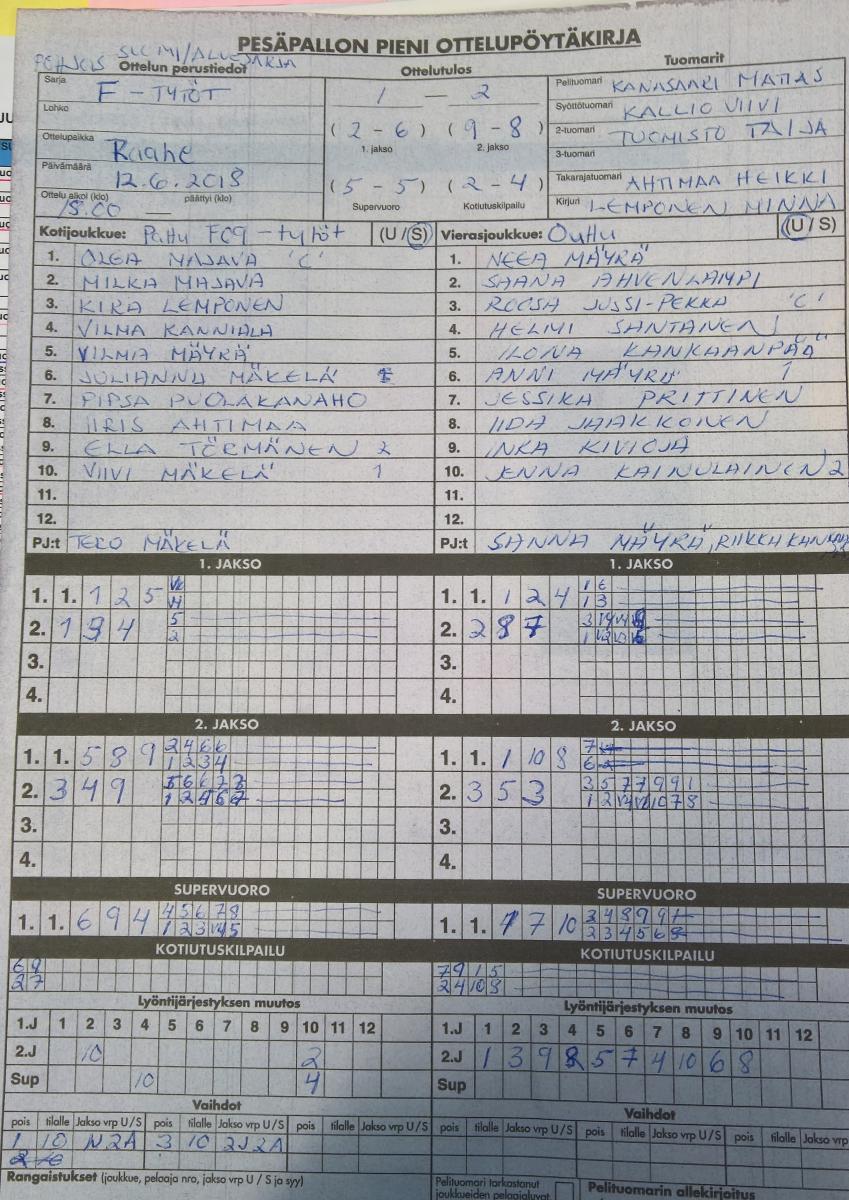 PESÄPALLON PIENI OTTELUPÖYTÄKIRJA
POHJOIS SUOMI/ALUESARJA
Ottelun perustiedot
Sarja F-TYTÖT
Lohko
Ottelupaikka Raahe
Päivämäärä 12.6.2018
Ottelu alkoi (klo) päättyi (klo)
15.00 —
Ottelutulos
1 — 2
(2-6) (9-8)
1. jakso 2. jakso
(5-5) (2-4)
Supervuoro Kotiutuskilpailu
Tuomarit
Pelituomari KANASAARI MATIAS
Syöttötuomari KALLIO VIIVI
2-tuomari TUOMISTO TAIJA
3-tuomari
Takarajatuomari AHTIMAA HEIKKI
Kirjuri LEMPONEN MINNA
Kotijoukkue: Pattu F09-tytöt (U/S)
1. OLGA MAJAVA 'C'
2. MILKA MAJAVA
3. KIRA LEMPONEN
4. VILMA KANNIALA
5. VILMA MÄYRÄ
6. JULIANNA MÄKELÄ
7. PIPSA PUOLAKANAHO
8. IIRIS AHTIMAA
9. ELLA TÖRMÄNEN 2
10. VIIVI MÄKELÄ 1
11.
12.
PJ:t TERO MÄKELÄ
Vierasjoukkue: Ouhu (U/S)
1. NEEA MÄYRÄ
2. SAANA AHVENLAMPI
3. ROOSA JUSSI-PEKKA 'C'
4. HELMI SANTANEN
5. ILONA KANKAANPÄÄ
6. ANNI MÄYRÄ 1
7. JESSIKA PRITTINEN
8. IIDA JAAKKONEN
9. INKA KIVIOJA
10. JENNA KAINULAINEN 2
11.
12.
PJ:t SANNA MÄYRÄ, RIIKKA
1. JAKSO
1. 1. 1 2 5
2. 1 9 4 5
2
3.
4.
1. JAKSO
1. 1. 1 2 4 1 6
1 3
2. 2 8 7
3.
4.
2. JAKSO
1. 1. 5 8 9 2 4 6 6
1 2 3 4
2. 3 4 9
3.
4.
2. JAKSO
1. 1. 1 10 8
2. 3 5 3 3 5 7 7 9 9 1
3.
4.
SUPERVUORO
1. 1. 6 9 4 4 5 6 7 8
SUPERVUORO
1. 1. 7 10
KOTIUTUSKILPAILU
6 9
2 7
KOTIUTUSKILPAILU
7 9 1 5
2 4 10 8
Lyöntijärjestyksen muutos
1.J 1 2 3 4 5 6 7 8 9 10 11 12
2.J 10 2
Sup 10 4
Lyöntijärjestyksen muutos
1.J 1 2 3 4 5 6 7 8 9 10 11 12
2.J 1 3 9 2 5 7 4 10 6 8
Sup
Vaihdot
pois tilalle Jakso vrp U/S pois tilalle Jakso vrp U/S pois tilalle Jakso vrp U/S
1 10 3 10 2J2A
Vaihdot
pois tilalle Jakso vrp U/S pois tilalle Jakso vrp U/S pois tilalle Jakso vrp
Rangaistukset (joukkue, pelaaja nro, jakso vrp U/S ja syy)
Pelituomari tarkastanut
joukkueiden pelaajaluvat
Pelituomarin allekirjoitus